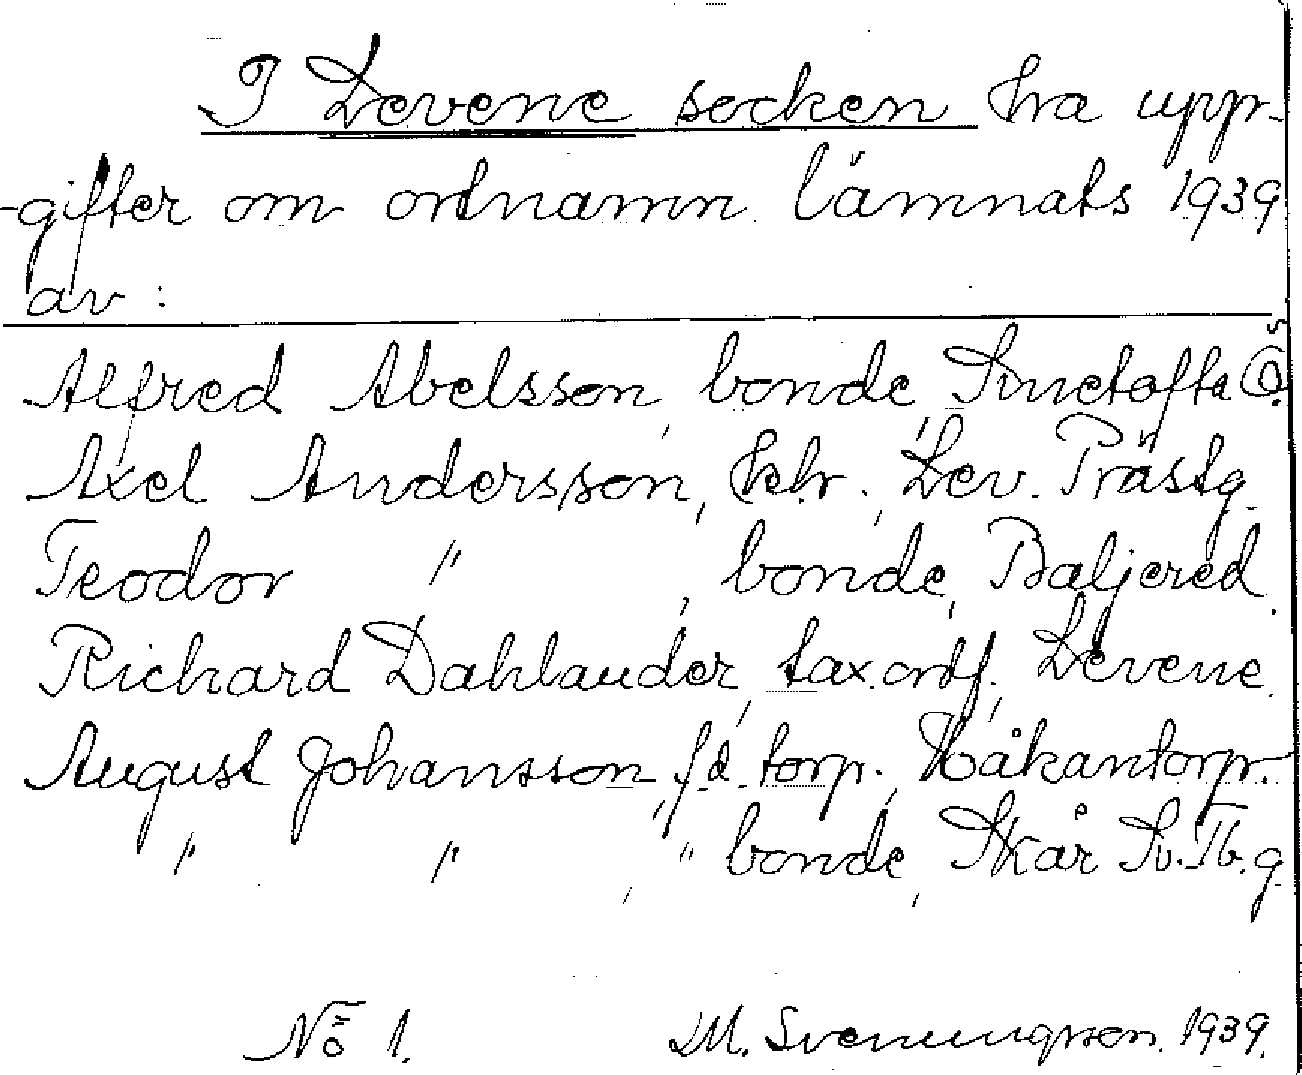 I Levene socken ha upp-
-gifter om ortnamn lämnats 1939
av :
Alfred Abelsson, bonde, Smetofta Ö.
Axel Andersson, kh., Lev. Prästg.
Teodor " , bonde, Baljered.
Richard Dahlander, tax. ordf., Levene.
August Johansson, f.d. torp., Håkantorp.
" " , " bonde, Skår
No 1. M. Svenungsson. 1939.